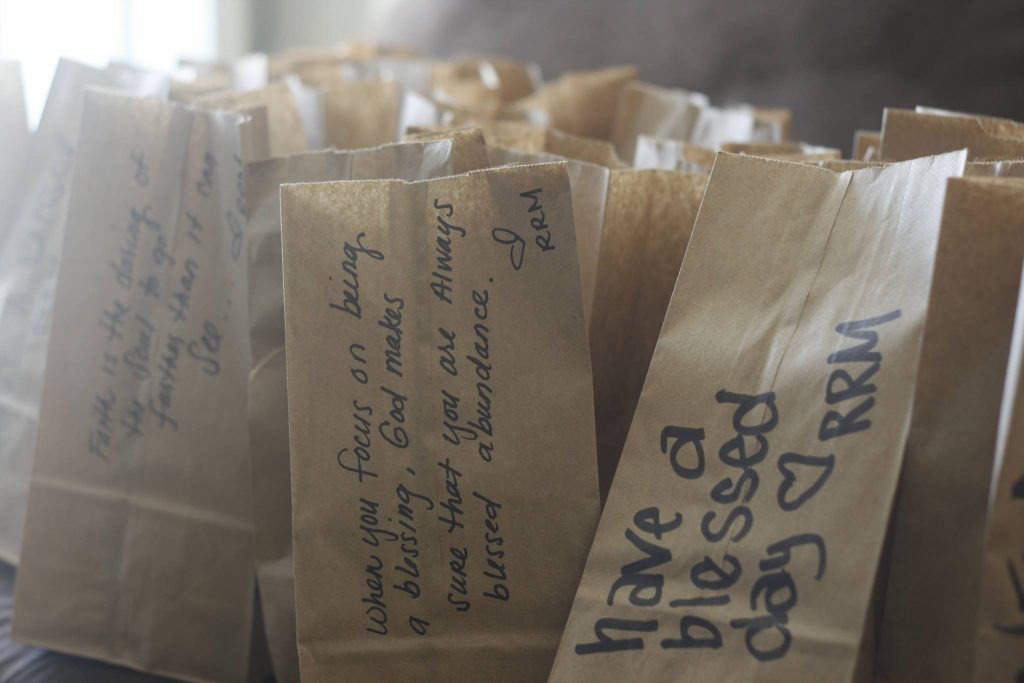 Faith is the daring of
the soul to go
farther than it can
see...
When you focus on being
a blessing, God makes
sure that you are Always
blessed abundance.
♡ RRM
have a
blessed
day ♡ RRM